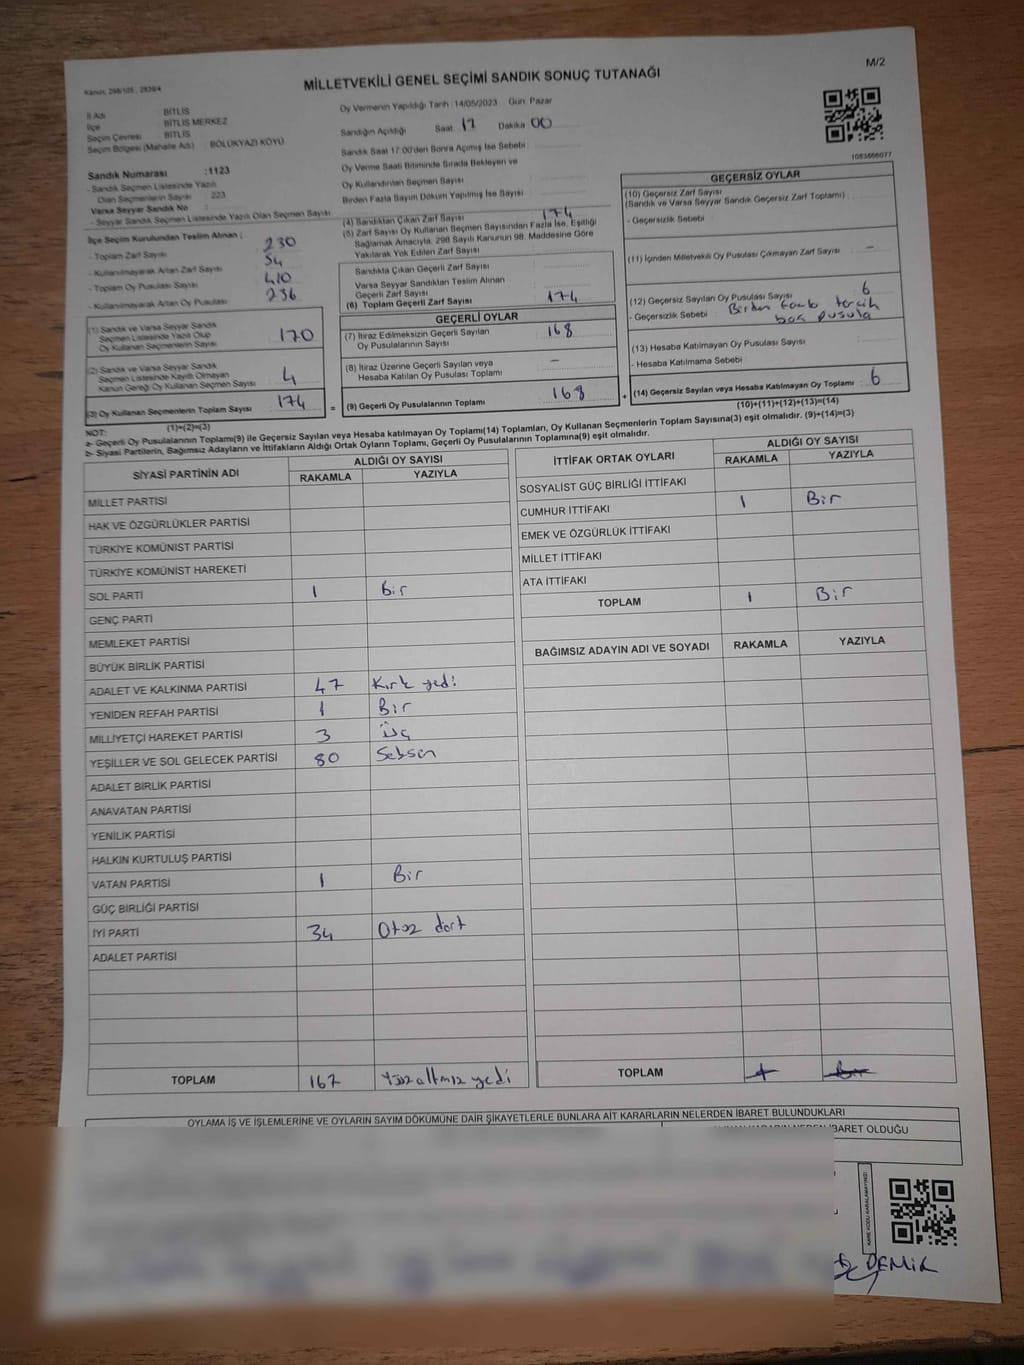 Kanun, 298/105 , 2839/4
MİLLETVEKİLİ GENEL SEÇİMİ SANDIK SONUÇ TUTANAĞI
M/2
İl Adı BİTLİS
İlçe BİTLİS MERKEZ
Seçim Çevresi BİTLİS
Seçim Bölgesi (Mahalle Adı) : BÖLÜKYAZI KÖYÜ
Sandık Numarası :1123
- Sandık Seçmen Listesinde Yazılı
Olan Seçmenlerin Sayısı : 223
Varsa Seyyar Sandık No :
- Seyyar Sandık Seçmen Listesinde Yazılı Olan Seçmen Sayısı
İlçe Seçim Kurulundan Teslim Alınan ;
- Toplam Zarf Sayısı 230
- Kullanılmayarak Artan Zarf Sayısı 54
- Toplam Oy Pusulası Sayısı 410
- Kullanılmayarak Artan Oy Pusulası 236
(1) Sandık ve Varsa Seyyar Sandık
Seçmen Listesinde Yazılı Olup
Oy Kullanan Seçmenlerin Sayısı 170
(2) Sandık ve Varsa Seyyar Sandık
Seçmen Listesinde Kayıtlı Olmayan
Kanun Gereği Oy Kullanan Seçmen Sayısı 4
(3) Oy Kullanan Seçmenlerin Toplam Sayısı 174
(1)+(2)=(3)
Oy Vermenin Yapıldığı Tarih :14/05/2023 Gün: Pazar
Sandığın Açıldığı Saat 17 Dakika 00
Sandık Saat 17:00'den Sonra Açılmış İse Sebebi
Oy Verme Saati Bitiminde Sırada Bekleyen ve
Oy Kullandırılan Seçmen Sayısı
Birden Fazla Sayım Döküm Yapılmış İse Sayısı
(4) Sandıktan Çıkan Zarf Sayısı 174
(5) Zarf Sayısı Oy Kullanan Seçmen Sayısından Fazla İse, Eşitliği
Sağlamak Amacıyla, 298 Sayılı Kanunun 98. Maddesine Göre
Yakılarak Yok Edilen Zarf Sayısı
Sandıkta Çıkan Geçerli Zarf Sayısı
Varsa Seyyar Sandıktan Teslim Alınan
Geçerli Zarf Sayısı
(6) Toplam Geçerli Zarf Sayısı 174
GEÇERLİ OYLAR
(7) İtiraz Edilmeksizin Geçerli Sayılan
Oy Pusulalarının Sayısı 168
(8) İtiraz Üzerine Geçerli Sayılan veya
Hesaba Katılan Oy Pusulası Toplamı –
= (9) Geçerli Oy Pusulalarının Toplamı 168
1083666077
GEÇERSİZ OYLAR
(10) Geçersiz Zarf Sayısı
(Sandık ve Varsa Seyyar Sandık Geçersiz Zarf Toplamı)
- Geçersizlik Sebebi
(11) İçinden Milletvekili Oy Pusulası Çıkmayan Zarf Sayısı –
(12) Geçersiz Sayılan Oy Pusulası Sayısı 6
- Geçersizlik Sebebi : Birden fazla tercih
boş pusula
(13) Hesaba Katılmayan Oy Pusulası Sayısı
- Hesaba Katılmama Sebebi
+ (14) Geçersiz Sayılan veya Hesaba Katılmayan Oy Toplamı 6
(10)+(11)+(12)+(13)=(14)
NOT:
a- Geçerli Oy Pusulalarının Toplamı(9) ile Geçersiz Sayılan veya Hesaba katılmayan Oy Toplamı(14) Toplamları, Oy Kullanan Seçmenlerin Toplam Sayısına(3) eşit olmalıdır. (9)+(14)=(3)
b- Siyasi Partilerin, Bağımsız Adayların ve İttifakların Aldığı Ortak Oyların Toplamı, Geçerli Oy Pusulalarının Toplamına(9) eşit olmalıdır.
SİYASİ PARTİNİN ADI ALDIĞI OY SAYISI
RAKAMLA YAZIYLA
MİLLET PARTİSİ
HAK VE ÖZGÜRLÜKLER PARTİSİ
TÜRKİYE KOMÜNİST PARTİSİ
TÜRKİYE KOMÜNİST HAREKETİ
SOL PARTİ 1 Bir
GENÇ PARTİ
MEMLEKET PARTİSİ
BÜYÜK BİRLİK PARTİSİ
ADALET VE KALKINMA PARTİSİ 47 Kırk yedi
YENİDEN REFAH PARTİSİ 1 Bir
MİLLİYETÇİ HAREKET PARTİSİ 3 Üç
YEŞİLLER VE SOL GELECEK PARTİSİ 80 Seksen
ADALET BİRLİK PARTİSİ
ANAVATAN PARTİSİ
YENİLİK PARTİSİ
HALKIN KURTULUŞ PARTİSİ
VATAN PARTİSİ 1 Bir
GÜÇ BİRLİĞİ PARTİSİ
İYİ PARTİ 34 Otuz dört
ADALET PARTİSİ
TOPLAM 167 Yüz altmış yedi
İTTİFAK ORTAK OYLARI ALDIĞI OY SAYISI
RAKAMLA YAZIYLA
SOSYALİST GÜÇ BİRLİĞİ İTTİFAKI
CUMHUR İTTİFAKI 1 Bir
EMEK VE ÖZGÜRLÜK İTTİFAKI
MİLLET İTTİFAKI
ATA İTTİFAKI
TOPLAM 1 Bir
BAĞIMSIZ ADAYIN ADI VE SOYADI RAKAMLA YAZIYLA
TOPLAM 1 Bir
OYLAMA İŞ VE İŞLEMLERİNE VE OYLARIN SAYIM DÖKÜMÜNE DAİR ŞİKAYETLERLE BUNLARA AİT KARARLARIN NELERDEN İBARET BULUNDUKLARI
NEDEN İBARET OLDUĞU
KARE KODU KARALAMAYINIZ!
DEMİR